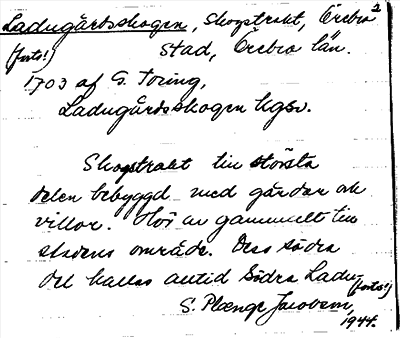 Ladugårdsskogen, Skogstrakt, Örebro 2
(forts!) stad, Örebro län.
1703 af G. Toring,
Ladugårdsskogen hgsv.
Skogstrakt till största
delen bebyggd med gårdar och
villor. Hör av gammalt till
stadens område. Dess södra
del kallas alltid Södra Ladu-
(forts!)
S. Plænge Jacobson,
1944.